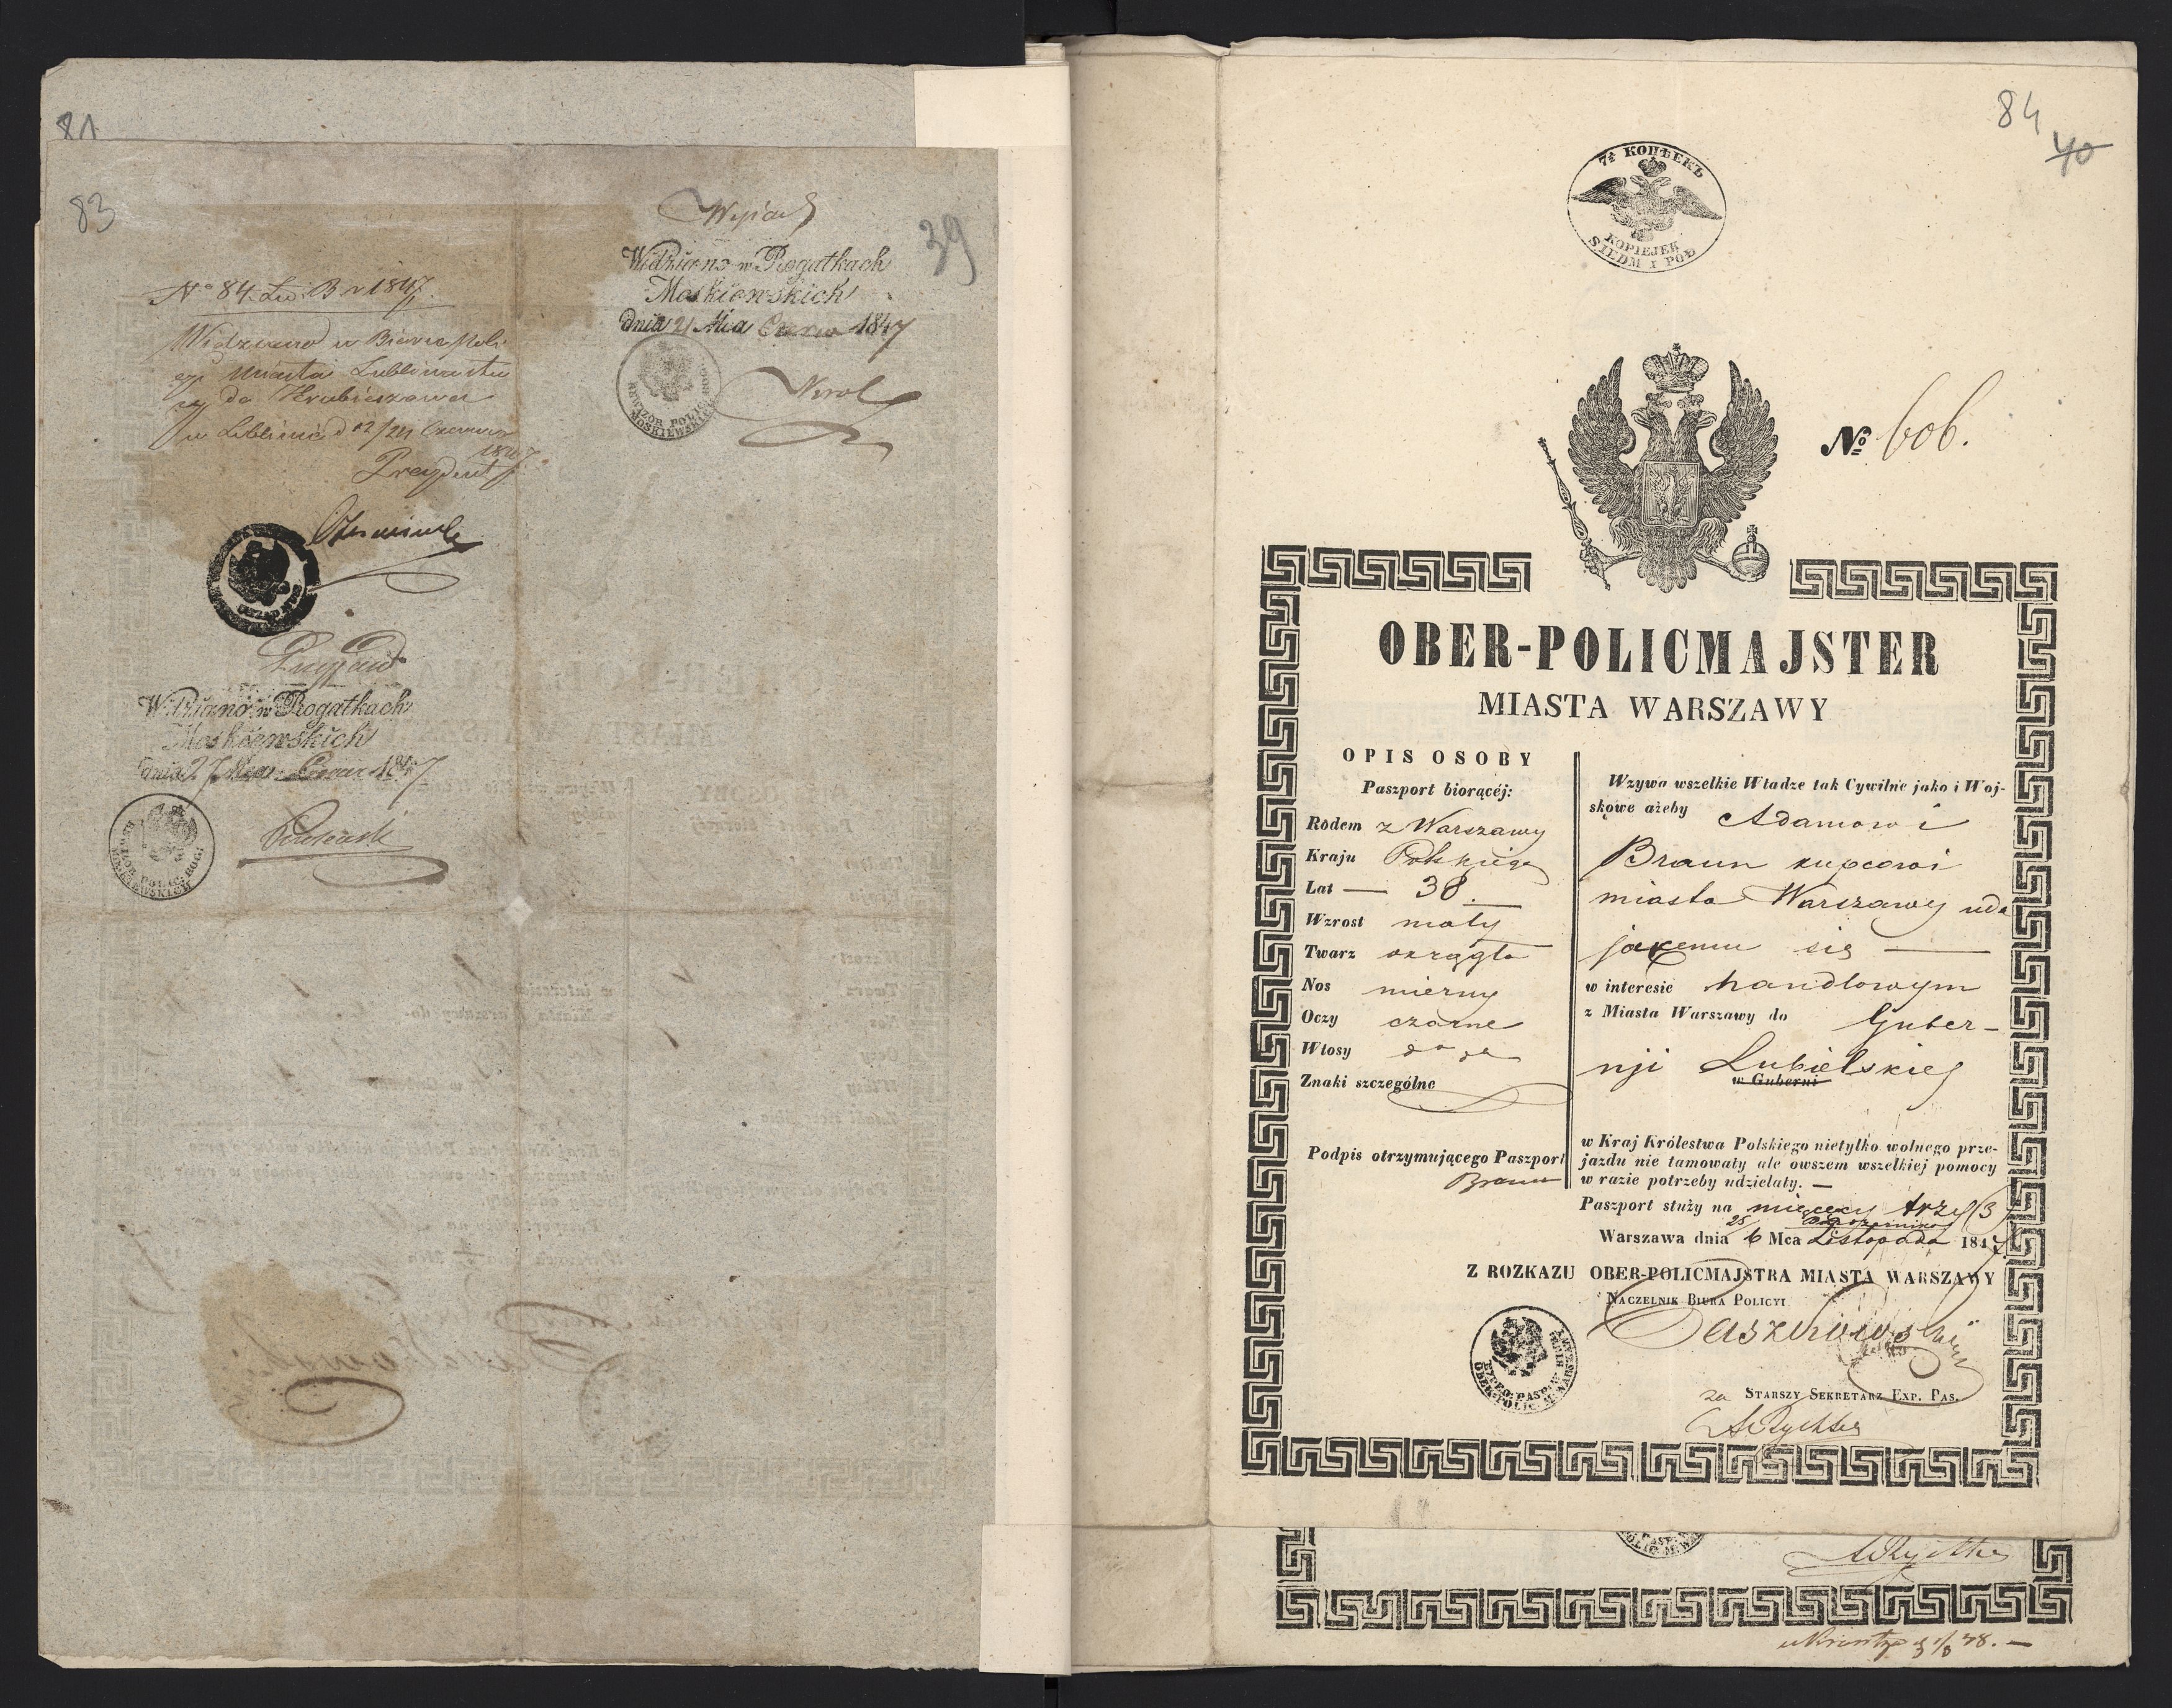 81
83
39
Nº 84. Lit. B r 1847
Widziano w Biurze Poli
cyi Miasta Lublina
do Hrubieszowa
w Lublinie d 12/24 Czerwca
1847
Prezydent
Wyjazd
Widziano w Rogatkach
Moskiewskich
dnia 21 Mca Czerwca 1847
REWIZOR POLIC. ROG.
MOSKIEWSKICH
Przyjazd
Widziano w Rogatkach
Moskiewskich
dnia 27 Mca Czerwca 1847
REWIZOR POLIC. ROG:
MOSKIEWSKICH
84
40
7½ КОПѢЕКЪ
KOPIEJEK
SIEDM I PÓŁ
Nº 606.
OBER-POLICMAJSTER
MIASTA WARSZAWY
OPIS OSOBY
Paszport biorącéj:
Rodem z Warszawy
Kraju Polskiego
Lat — 38.
Wzrost mały
Twarz okrągła
Nos mierny
Oczy czarne
Włosy
Znaki szczególne
Podpis otrzymującego Paszport
Braun
Wzywa wszelkie Władze tak Cywilne jako i Woj-
skowe ażeby Adamowi
Braun kupcowi
miasta Warszawy uda
jącemu się —
w interesie handlowym
z Miasta Warszawy do Guber-
nji Lubielskiej
w Guberni
w Kraj Królestwa Polskiego nietylko wolnego prze-
jazdu nie tamowały ale owszem wszelkiej pomocy
w razie potrzeby udzielały. —
Paszport służy na miesięcy trzy (3)
25 Października
Warszawa dnia 6 Mca Listopada 1847
Z ROZKAZU OBER-POLICMAJSTRA MIASTA WARSZAWY
NACZELNIK BIURA POLICYI
EXPED: PASPOR
OBER-POLIC: M: WARSZAWY
za STARSZY SEKRETARZ EXP. PAS.
A Rychter
A Rychter